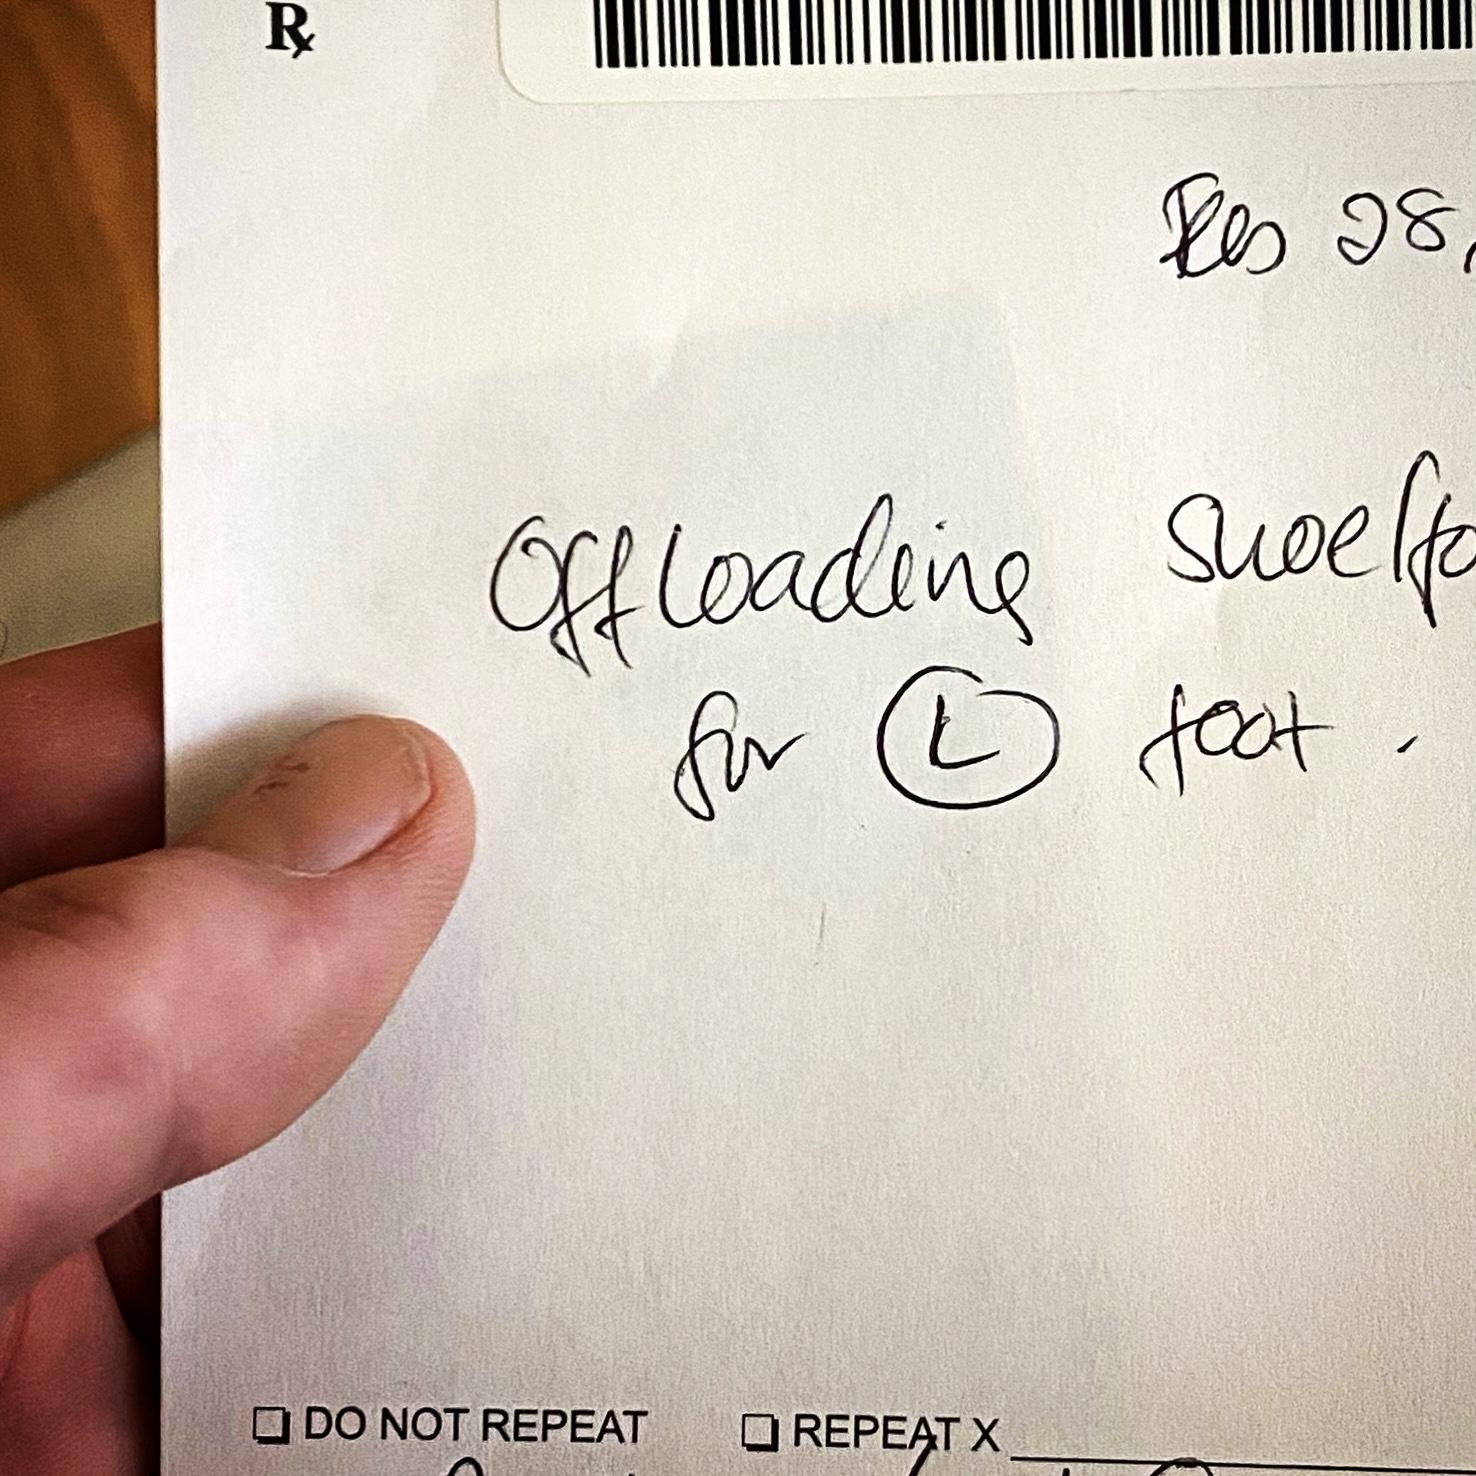 ℞
Feb 28,
Offloading shoe/fo
for Ⓛ foot.
❏ DO NOT REPEAT ❏ REPEAT X